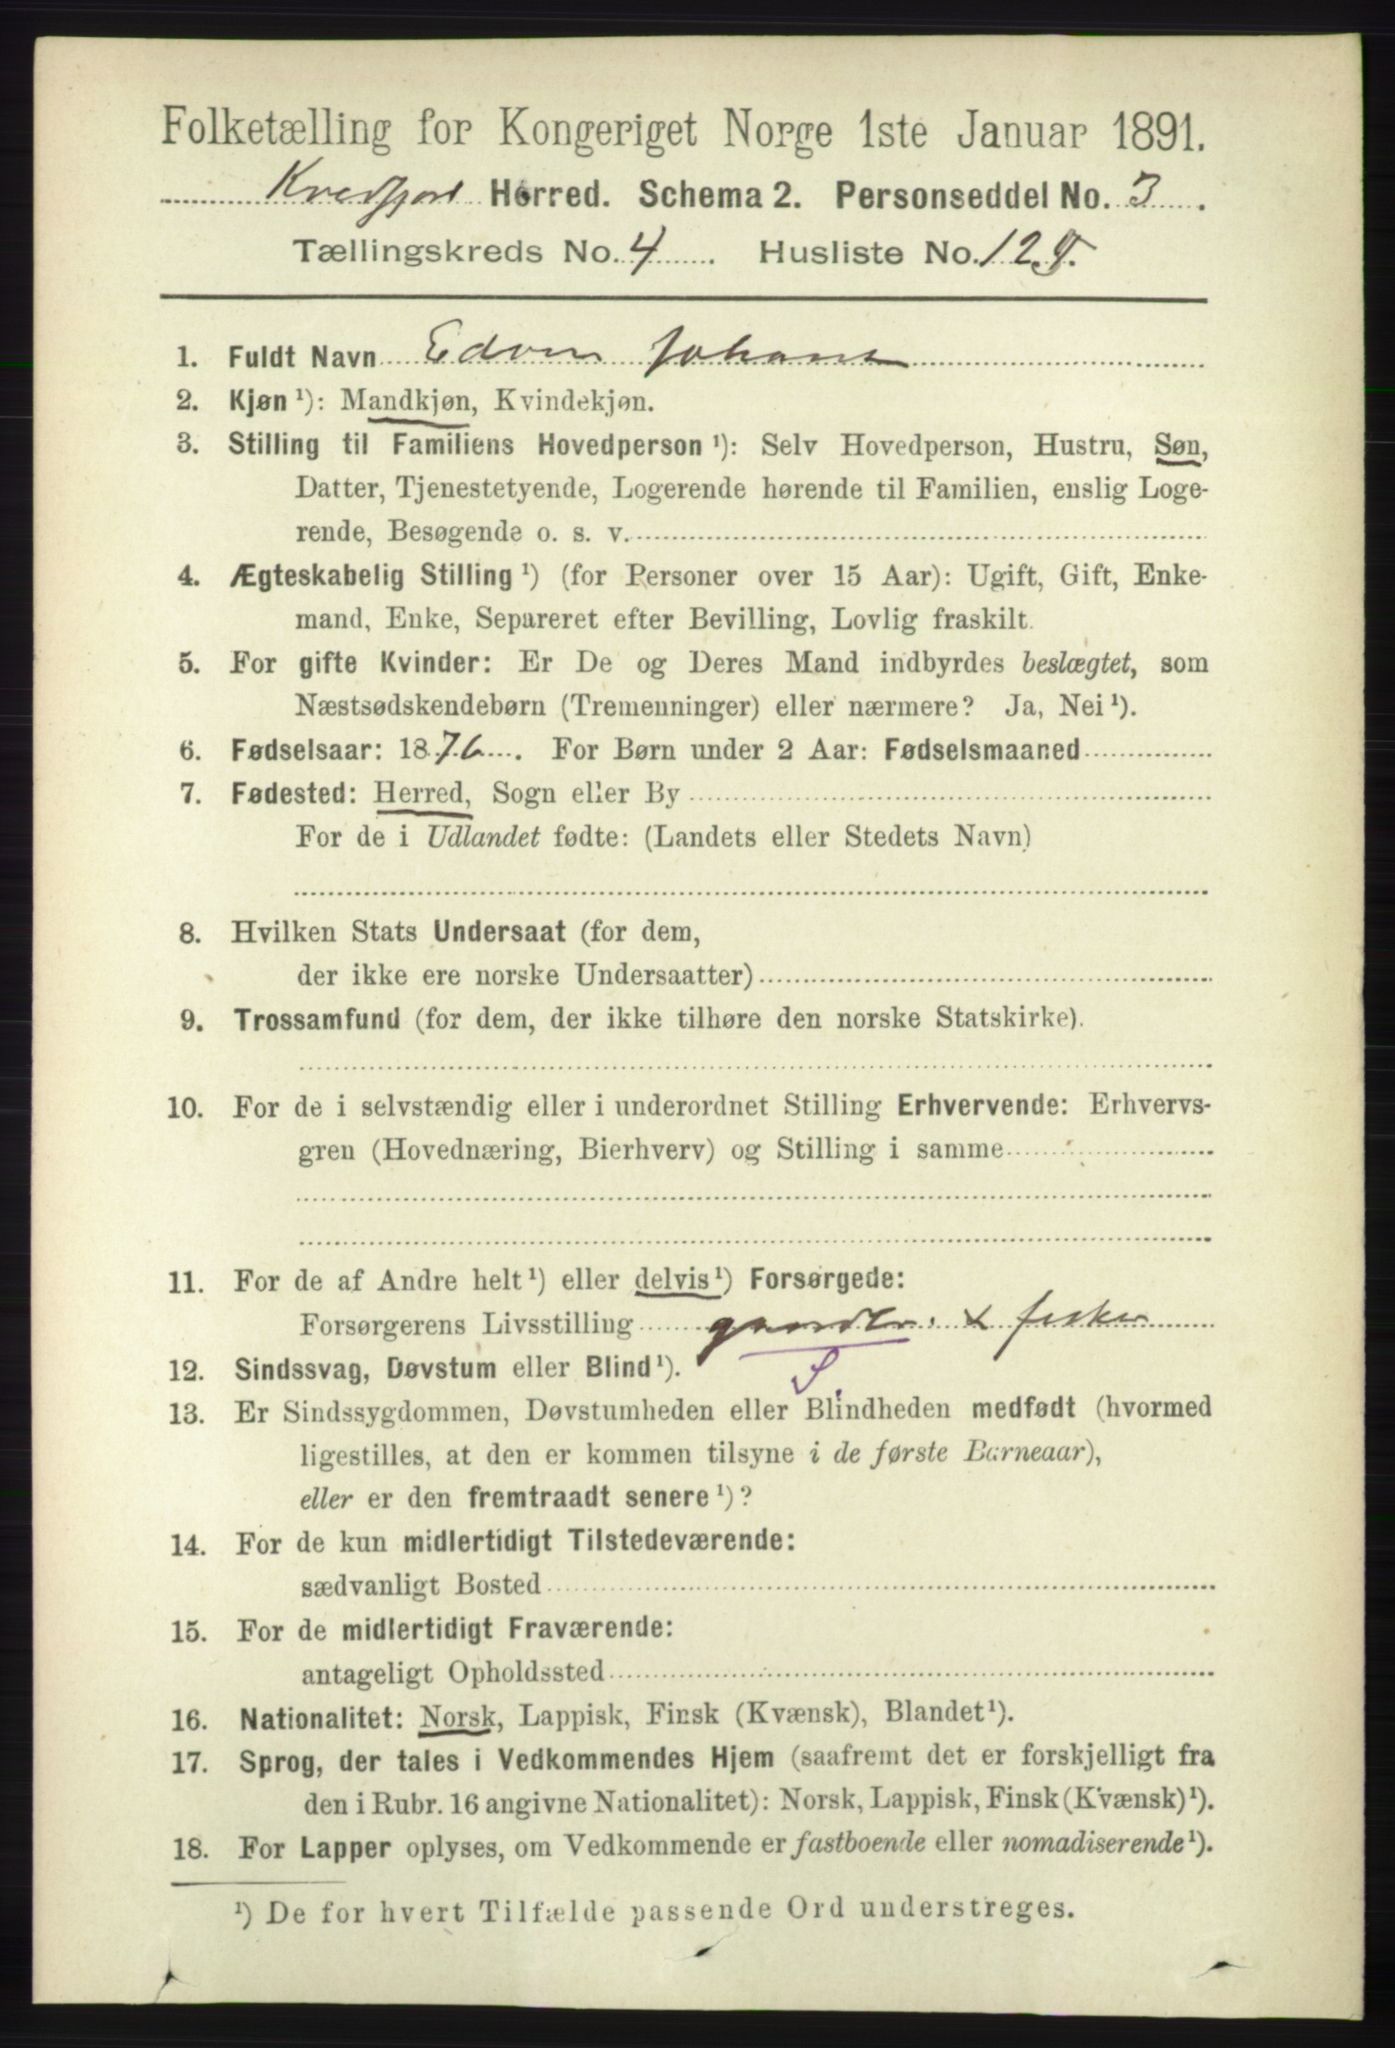 Folketælling for Kongeriget Norge 1ste Januar 1891.
Kvedfjord Herred. Schema 2. Personseddel No. 3.
Tællingskreds No. 4. Husliste No. 129.
1. Fuldt Navn Edvin Johans
2. Kjøn ¹): Mandkjøn, Kvindekjøn.
3. Stilling til Familiens Hovedperson ¹): Selv Hovedperson, Hustru, Søn,
Datter, Tjenestetyende, Logerende hørende til Familien, enslig Loge-
rende, Besøgende o. s. v.
4. Ægteskabelig Stilling ¹) (for Personer over 15 Aar): Ugift, Gift, Enke-
mand, Enke, Separeret efter Bevilling, Lovlig fraskilt.
5. For gifte Kvinder: Er De og Deres Mand indbyrdes beslægtet, som
Næstsødskendebørn (Tremenninger) eller nærmere? Ja, Nei ¹).
6. Fødselsaar: 1876. For Børn under 2 Aar: Fødselsmaaned
7. Fødested: Herred, Sogn eller By
For de i Udlandet fødte: (Landets eller Stedets Navn)
8. Hvilken Stats Undersaat (for dem,
der ikke ere norske Undersaatter)
9. Trossamfund (for dem, der ikke tilhøre den norske Statskirke).
10. For de i selvstændig eller i underordnet Stilling Erhvervende: Erhvervs-
gren (Hovednæring, Bierhverv) og Stilling i samme
11. For de af Andre helt ¹) eller delvis ¹) Forsørgede:
Forsørgerens Livsstilling gaardbr. & fisker
S.
12. Sindssvag, Døvstum eller Blind ¹).
13. Er Sindssygdommen, Døvstumheden eller Blindheden medfødt (hvormed
ligestilles, at den er kommen tilsyne i de første Barneaar),
eller er den fremtraadt senere ¹)?
14. For de kun midlertidigt Tilstedeværende:
sædvanligt Bosted
15. For de midlertidigt Fraværende:
antageligt Opholdssted
16. Nationalitet: Norsk, Lappisk, Finsk (Kvænsk), Blandet ¹).
17. Sprog, der tales i Vedkommendes Hjem (saafremt det er forskjelligt fra
den i Rubr. 16 angivne Nationalitet): Norsk, Lappisk, Finsk (Kvænsk) ¹).
18. For Lapper oplyses, om Vedkommende er fastboende eller nomadiserende ¹).
¹) De for hvert Tilfælde passende Ord understreges.